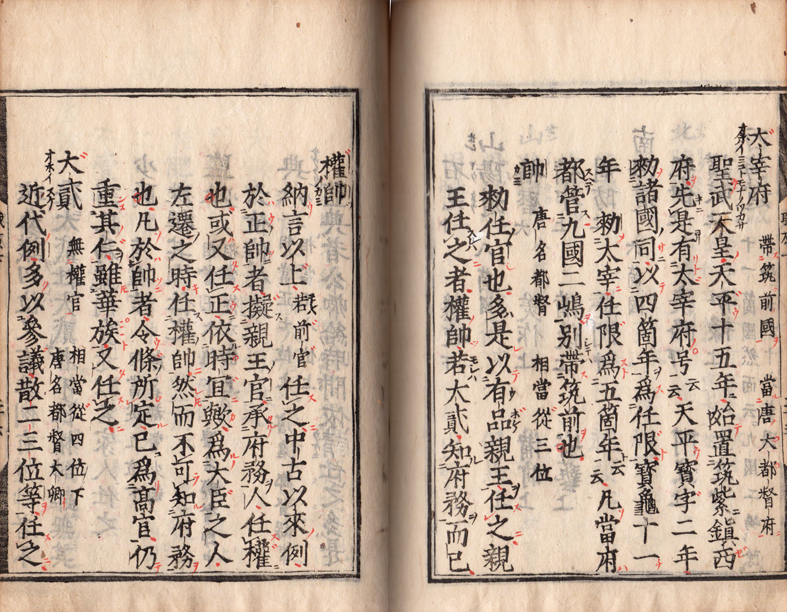 太宰府 帶筑前國 當唐大都督府
聖武天皇天平十五年始置筑紫鎮西
府先是有太宰府号云云天平寳字二年
勑諸國同以四箇年爲任限寳龜十一
年勑太宰任限爲五箇年云云凡當府
都管九國二嶋別帶筑前也
帥 唐名都督 相當從三位
勑任官也多是以有品親王任之親
王任之者權帥若大貳知府務而已
權帥
納言以上若前官任之中古以來例
於正帥者擬親王官承府務人任權
也或又任正依時宜歟爲大臣之人
左遷之時任權帥然而不可知府務
也凡於帥者令條所定已爲高官仍
重其仁雖華族又任之
大貳 無權官 相當從四位下 唐名都督大卿
近代例多以參議散二三位等任之